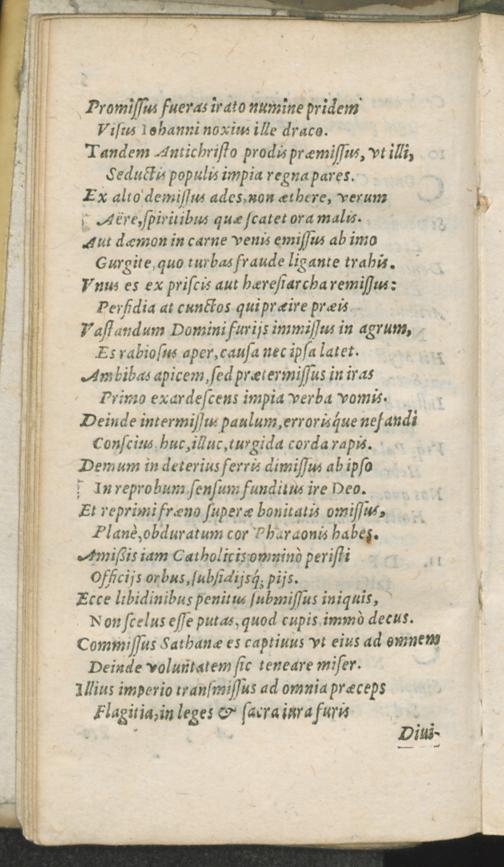 Promiſſus fueras irato numine pridem
Viſus Iohanni noxius ille draco.
Tandem Antichriſto prodis præmiſſus, vt illi,
Seductis populis impia regna pares.
Ex alto demiſſus ades, non æthere, verum
Aëre, ſpiritibus quæ ſcatet ora malis.
Aut dæmon in carne venis emiſſus ab imo
Gurgite, quo turbas fraude ligante trahis.
Vnus es ex priſcis aut hæreſiarcha remiſſus:
Perfidia at cunctos qui præire præis
Vaſtandum Domini furijs immiſſus in agrum,
Es rabioſus aper, cauſa nec ipſa latet.
Ambibas apicem, ſed prætermiſſus in iras
Primo exardeſcens impia verba vomis.
Deinde intermiſſus paulum, erroriśque nefandi
Conſcius huc, illuc, turgida corda rapis.
Demum in deterius ferris dimiſſus ab ipſo
In reprobum ſenſum funditus ire Deo.
Et reprimi fræno ſuperæ bonitatis omiſſus,
Planè, obduratum cor Pharaonis habes.
Amißis iam Catholicis omninò periſti
Officijs orbus, ſubſidijsq́; pijs.
Ecce libidinibus penitus ſubmiſſus iniquis,
Non ſcelus eſſe putas, quod cupis immò decus.
Commiſſus Sathanæ es captiuus vt eius ad omnem
Deinde voluntatem ſic teneare miſer.
Illius imperio tranſmiſſus ad omnia præceps
Flagitia, in leges & ſacra iura furis
Diui-